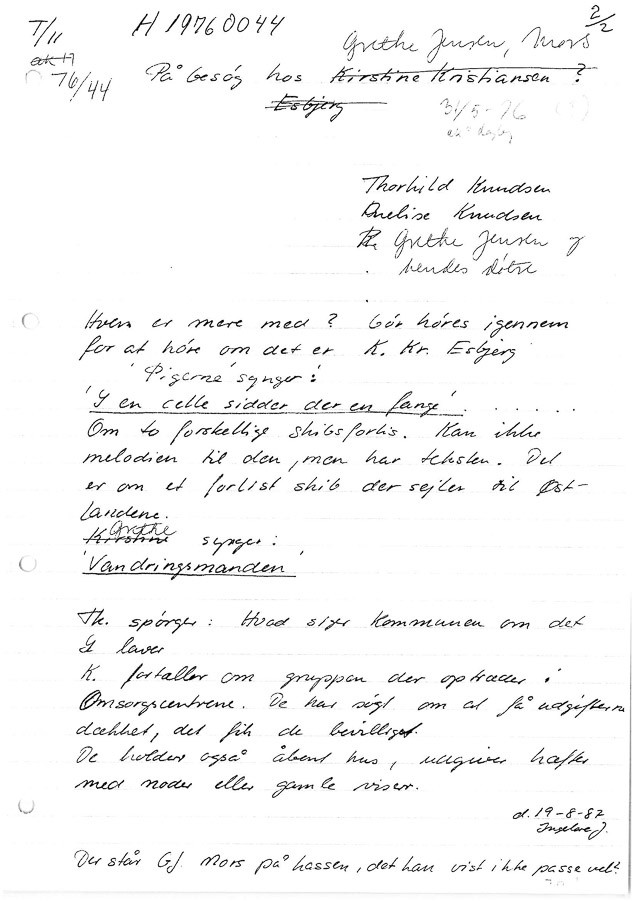 T/11 H 19760044 2/2
ak 17
76/44 Grethe Jensen, Mors
På besøg hos Kirstine Kristiansen ?
Esbjerg 31/5-76
Thorkild Knudsen
Anelise Knudsen
Grethe Jensen og
hendes døtre
Hvem er mere med ? bør høres igennem
for at høre om det er K. Kr. Esbjerg
'Pigerne' synger :
'I en celle sidder der en fange' . . . . . .
Om to forskellige skibsforlis. Kan ikke
melodien til den, men har teksten. Det
er om et forlist skib der sejler til Øst-
landene.
Kirstine Grethe synger :
'Vandringsmanden'
Th. spørger : Hvad siger kommunen om det
I laver
K. fortæller om gruppen der optræder i
Omsorgscentrene. De har søgt om at få udgifterne
dækket, det fik de bevilliget.
De holder også åbent hus, udgiver hæfter
med noder eller gamle viser.
d. 19-8-82
Ingelise J.
Der står GJ. Mors på kassen, det kan vist ikke passe vel?